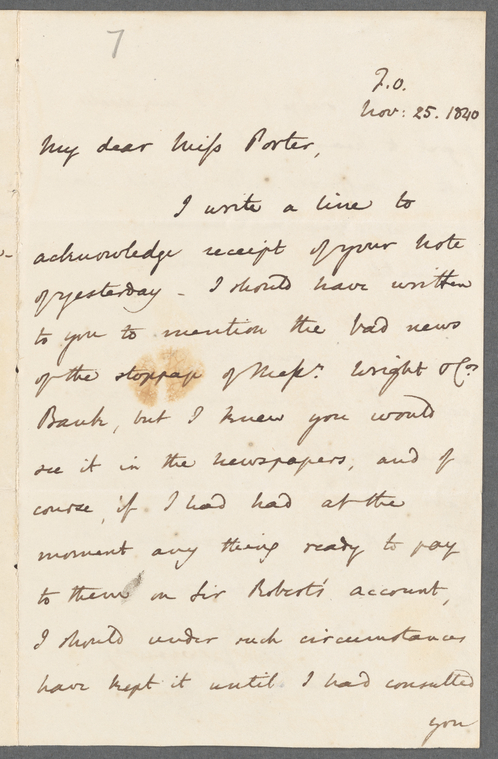 7
F.O.
Nov: 25. 1840
My dear Miss Porter,
I write a line to
acknowledge receipt of your note
of yesterday - I should have written
to you to mention the bad news
of the stoppage of Messrs. Wright & Cos.
Bank, but I knew you would
see it in the newspapers, and of
course, if I had had at the
moment any thing ready to pay
to them on Sir Robert's account,
I should under such circumstances
have kept it until I had consulted
you